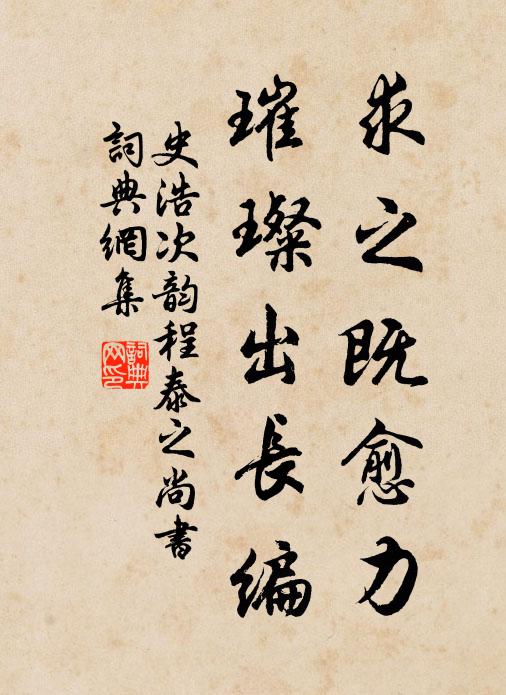 求之既愈力
璀璨出長編
史浩次韵程泰之尚書
詞典網集
詞典網印